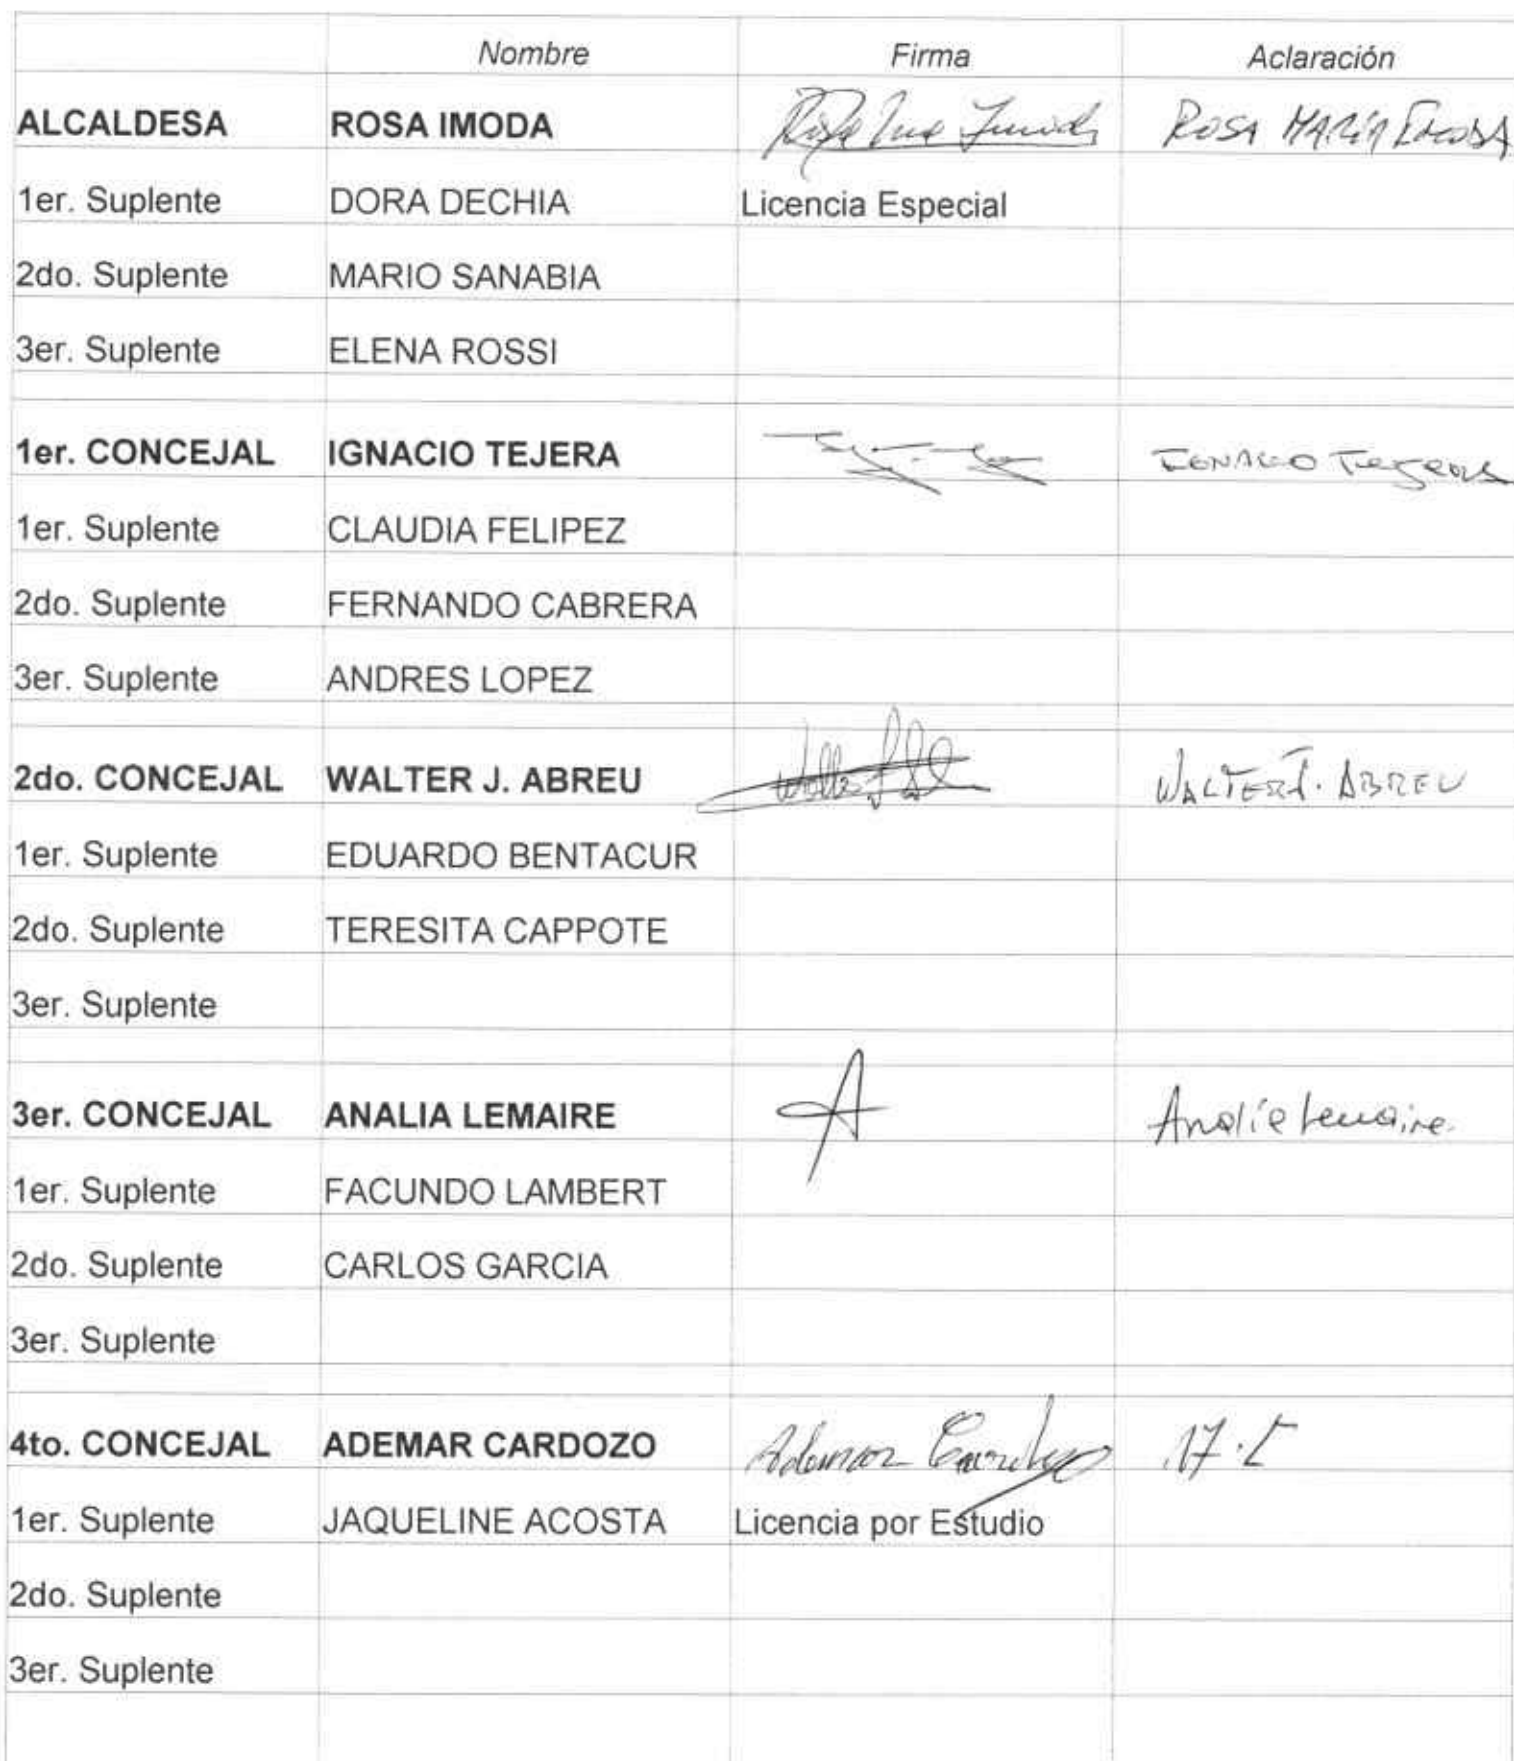 Nombre Firma Aclaración
ALCALDESA ROSA IMODA ROSA MARÍA
1er. Suplente DORA DECHIA Licencia Especial
2do. Suplente MARIO SANABIA
3er. Suplente ELENA ROSSI
1er. CONCEJAL IGNACIO TEJERA IGNACIO Tejera
1er. Suplente CLAUDIA FELIPEZ
2do. Suplente FERNANDO CABRERA
3er. Suplente ANDRES LOPEZ
2do. CONCEJAL WALTER J. ABREU WALTER J. ABREU
1er. Suplente EDUARDO BENTACUR
2do. Suplente TERESITA CAPPOTE
3er. Suplente
3er. CONCEJAL ANALIA LEMAIRE A Analía Lemaire
1er. Suplente FACUNDO LAMBERT
2do. Suplente CARLOS GARCIA
3er. Suplente
4to. CONCEJAL ADEMAR CARDOZO Ademar Cardozo
1er. Suplente JAQUELINE ACOSTA Licencia por Estudio
2do. Suplente
3er. Suplente